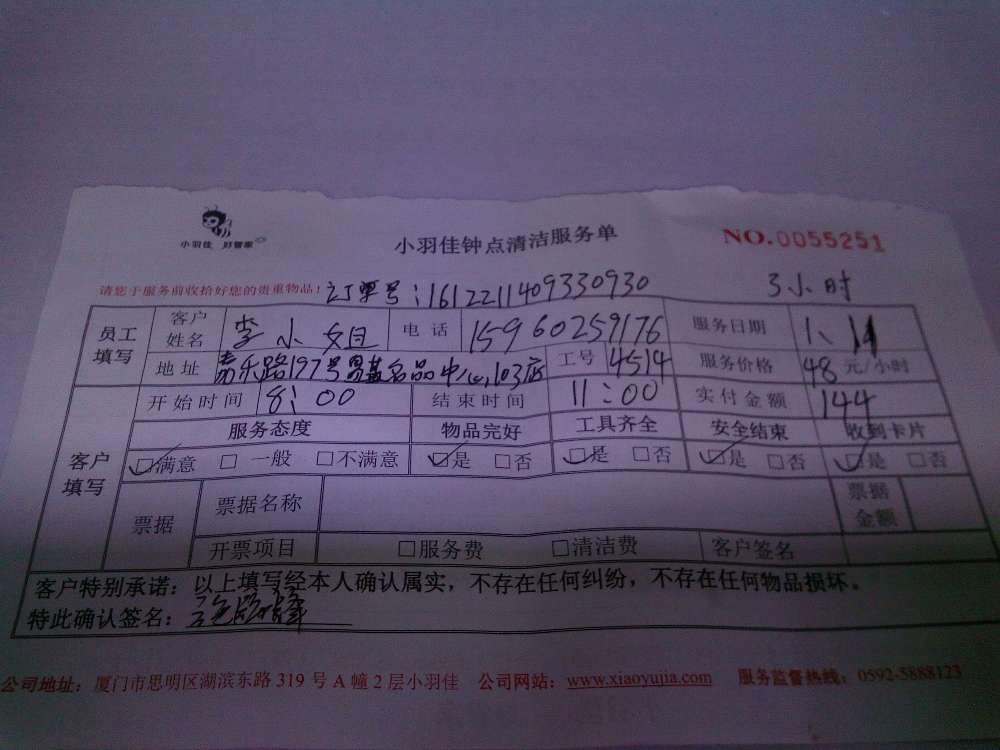 小羽佳 好管家
小羽佳钟点清洁服务单
NO.0055251
请您于服务前收拾好您的贵重物品！ 订单号：1612211409330930 3小时
员工填写 客户姓名 李小姐 电话 15960259176 服务日期 1、11
地址 嘉禾路197号 名品中心,103店 工号 4514 服务价格 48元/小时
客户填写 开始时间 8:00 结束时间 11:00 实付金额 144
服务态度 物品完好 工具齐全 安全结束 收到卡片
☑满意 □一般 □不满意 ☑是 □否 ☑是 □否 ☑是 □否 ☑是 □否
票据 票据名称 票据金额
开票项目 □服务费 □清洁费 客户签名
客户特别承诺：以上填写经本人确认属实，不存在任何纠纷，不存在任何物品损坏。
特此确认签名：
公司地址：厦门市思明区湖滨东路 319 号 A 幢 2 层小羽佳 公司网站：www.xiaoyujia.com 服务监督热线：0592-5888123